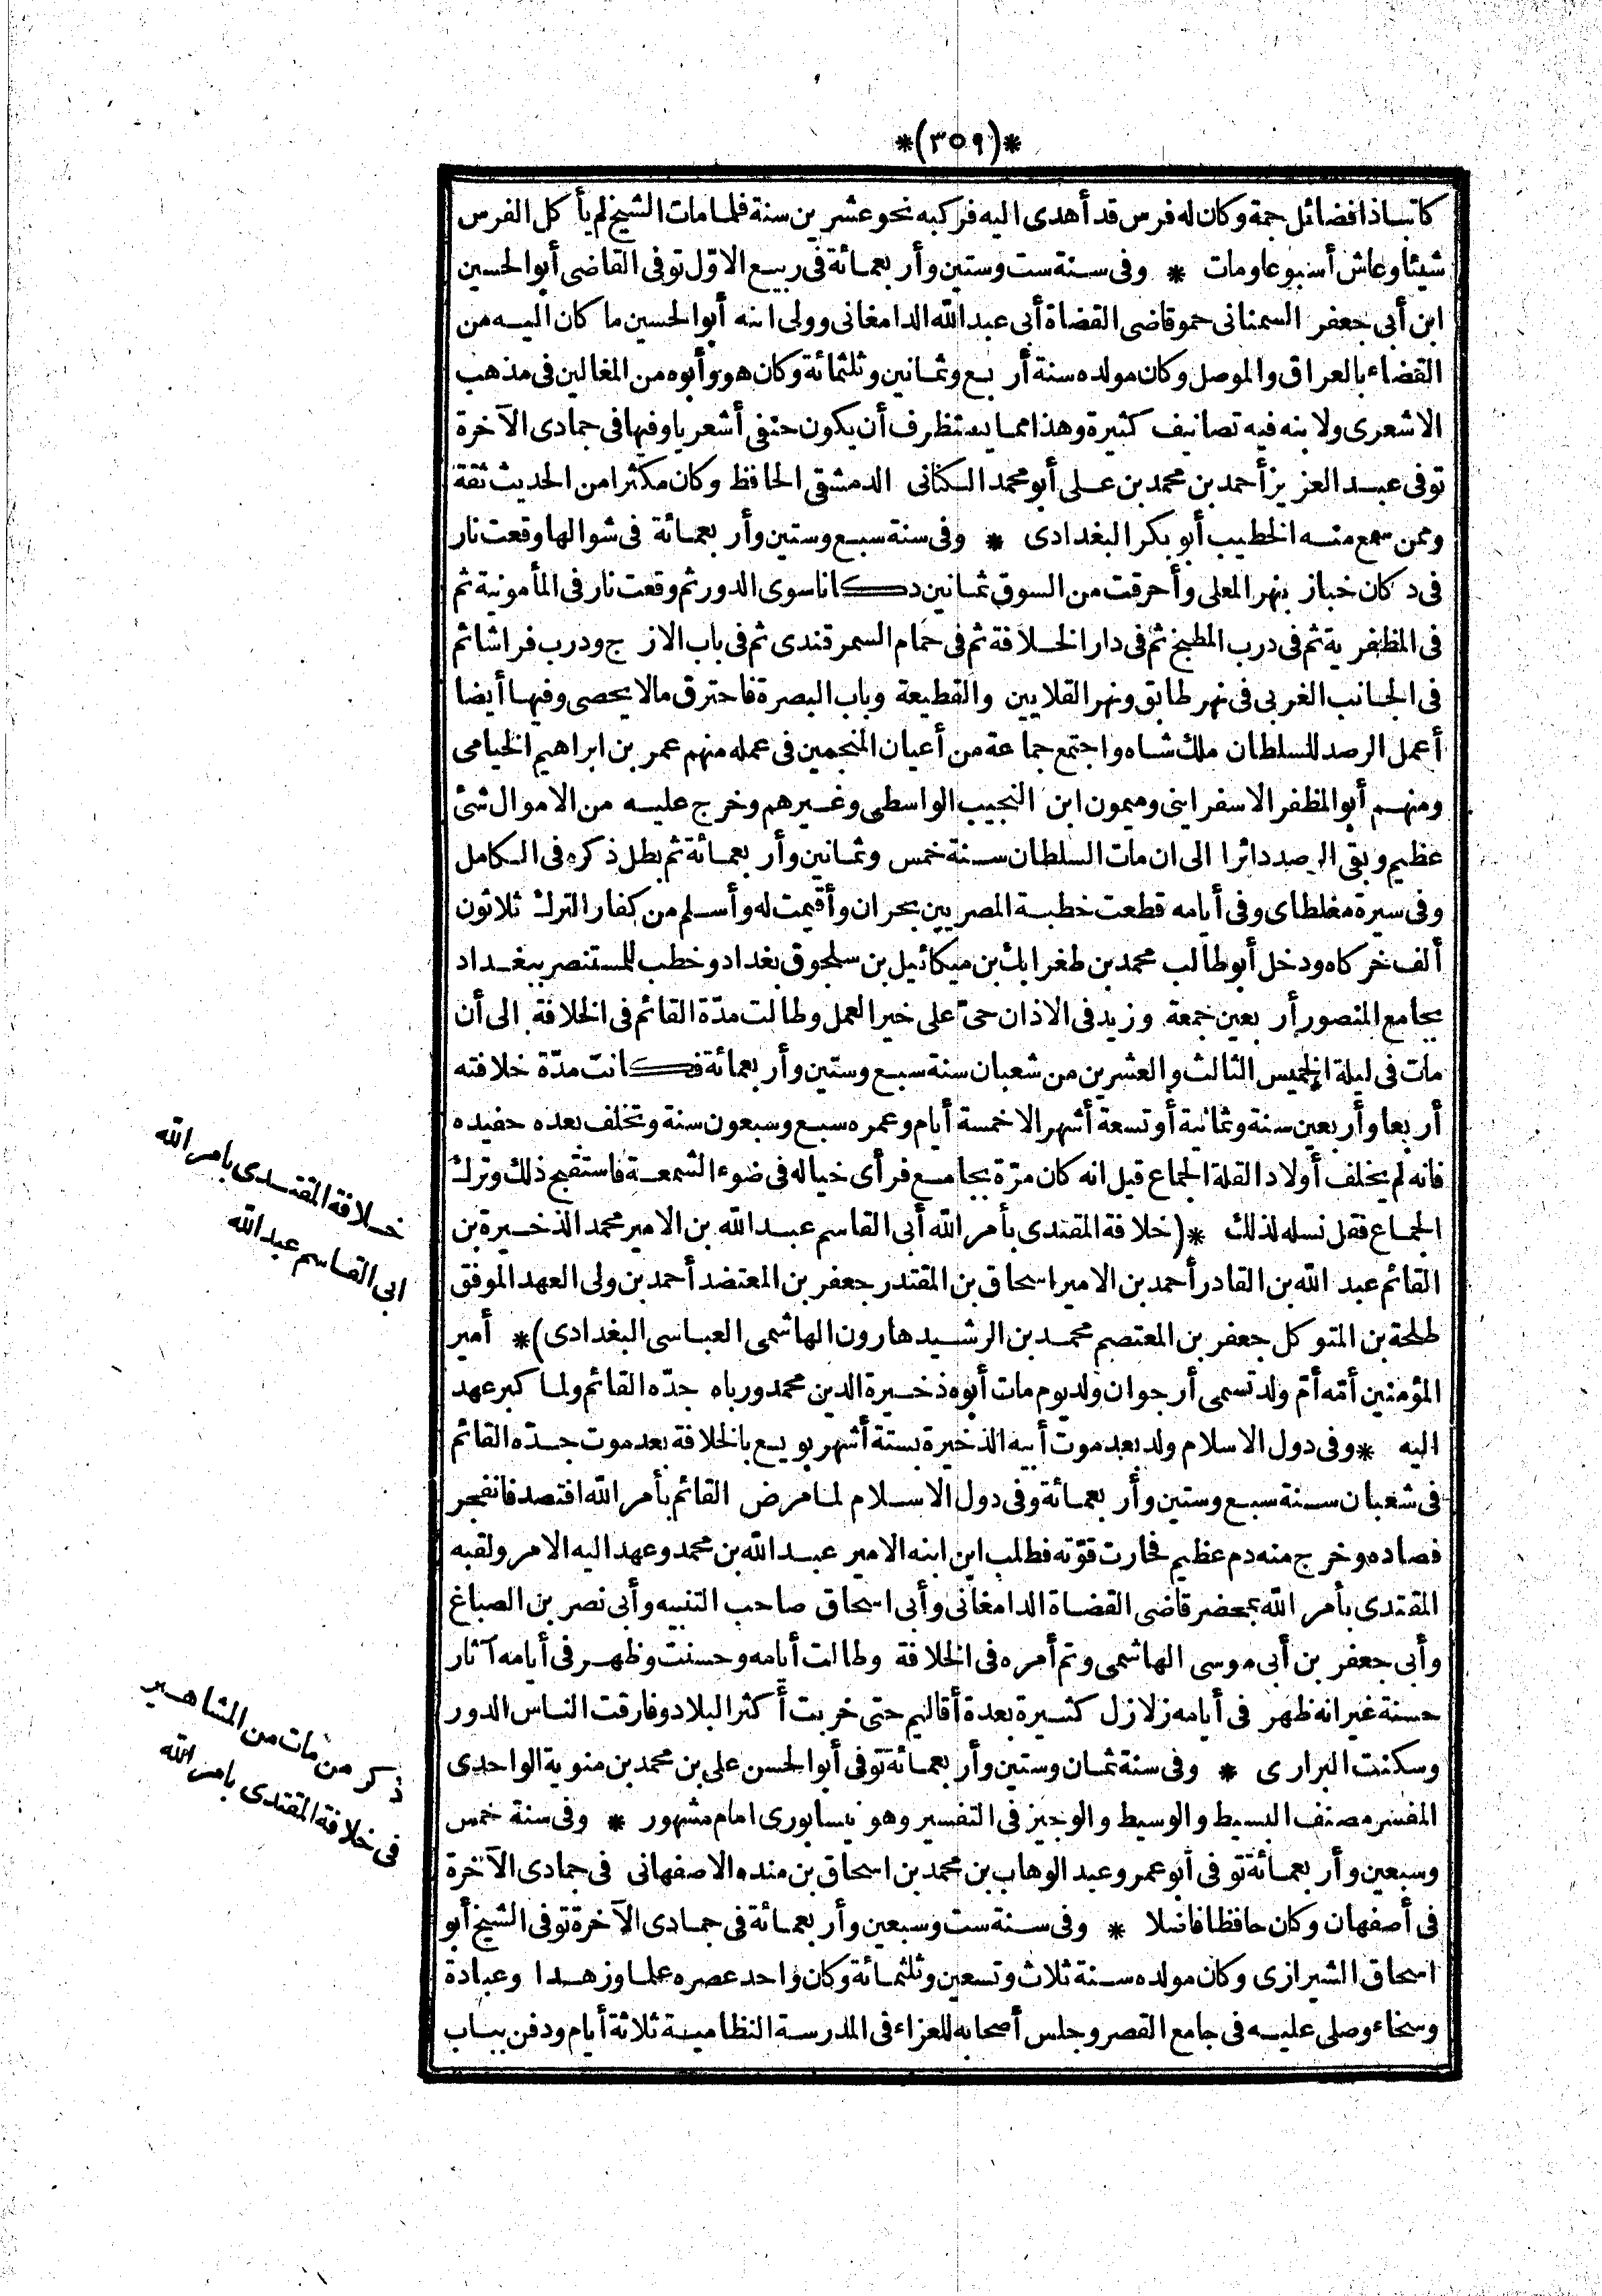 *(٣٥٩)*
كاتبا ذا فضائل جمة وكان له فرس قد أهدى اليه فركبه نحو عشرين سنة فلما مات الشيخ لم يأكل الفرس
شيئا وعاش أسبوعا ومات * وفى سنة ست وستين وأربعمائة فى ربيع الاوّل توفى القاضى أبو الحسين
ابن أبى جعفر السمنانى حمو قاضى القضاة أبى عبد الله الدامغانى وولى ابنه أبو الحسين ما كان اليه من
القضاء بالعراق والموصل وكان مولده سنة أربع وثمانين وثلثمائة وكان هو وأبوه من المغالين فى مذهب
الاشعرى ولابنه فيه تصانيف كثيرة وهذا مما يستظرف أن يكون حنفى أشعريا وفيها فى جمادى الآخرة
توفى عبد العزيز أحمد بن محمد بن على أبو محمد الكنانى الدمشقى الحافظ وكان مكثرا من الحديث ثقة
وممن سمع منه الخطيب أبو بكر البغدادى * وفى سنة سبع وستين وأربعمائة فى شوالها وقعت نار
فى دكان خباز بنهر المعلى وأحرقت من السوق ثمانين دكانا سوى الدور ثم وقعت نار فى المأمونية ثم
فى المظفرية ثم فى درب المطبخ ثم فى دار الخلافة ثم فى حمام السمرقندى ثم فى باب الازج ودرب فراشا ثم
فى الجانب الغربى فى نهر طابق ونهر القلايين والقطيعة وباب البصرة فاحترق مالا يحصى وفيها أيضا
أعمل الرصد للسلطان ملك شاه واجتمع جماعة من أعيان المنجمين فى عمله منهم عمر بن ابراهيم الخيامى
ومنهم أبو المظفر الاسفراينى وميمون ابن النجيب الواسطى وغيرهم وخرج عليه من الاموال شئ
عظيم وبقى الرصد دائرا الى ان مات السلطان سنة خمس وثمانين وأربعمائة ثم بطل ذكره فى الكامل
وفى سيرة مغلطاى وفى أيامه قطعت خطبة المصريين بحران وأقيمت له وأسلم من كفار الترك ثلاثون
ألف خركاه ودخل أبو طالب محمد بن طغرابك بن ميكائيل بن سلجوق بغداد وخطب للمستنصر ببغداد
بجامع المنصور أربعين جمعة وزيد فى الاذان حىّ على خير العمل وطالت مدّة القائم فى الخلافة الى أن
مات فى ليلة الخميس الثالث والعشرين من شعبان سنة سبع وستين وأربعمائة فكانت مدّة خلافته
أربعا وأربعين سنة وثمانية أو تسعة أشهر الا خمسة أيام وعمره سبع وسبعون سنة وتخلف بعده حفيده
فانه لم يخلف أولادا لقلة الجماع قيل انه كان مرّة يجامع فرأى خياله فى ضوء الشمعة فاستقبح ذلك وترك
الجماع فقل نسله لذلك * (خلافة المقتدى بأمر الله أبى القاسم عبد الله بن الامير محمد الذخيرة بن
القائم عبد الله بن القادر أحمد بن الامير اسحاق بن المقتدر جعفر بن المعتضد أحمد بن ولى العهد الموفق
طلحة بن المتوكل جعفر بن المعتصم محمد بن الرشيد هارون الهاشمى العباسى البغدادى)* أمير
المؤمنين أمّه أمّ ولد تسمى أرجوان ولد يوم مات أبوه ذخيرة الدين محمد ورباه جدّه القائم ولما كبر عهد
اليه * وفى دول الاسلام ولد بعد موت أبيه الذخيرة بستة أشهر بويع بالخلافة بعد موت جدّه القائم
فى شعبان سنة سبع وستين وأربعمائة وفى دول الاسلام لما مرض القائم بأمر الله افتصد فانفجر
فصاده وخرج منه دم عظيم فخارت قوّته فطلب ابن ابنه الامير عبد الله بن محمد وعهد اليه الامر ولقبه
المقتدى بأمر الله بمحضر قاضى القضاة الدامغانى وأبى اسحاق صاحب التنبيه وأبى نصر بن الصباغ
وأبى جعفر بن أبى موسى الهاشمى وتم أمره فى الخلافة وطالت أيامه وحسنت وظهر فى أيامه آثار
حسنة غير انه ظهر فى أيامه زلازل كثيرة بعدة أقاليم حتى خربت أكثر البلاد وفارقت الناس الدور
وسكنت البرارى * وفى سنة ثمان وستين وأربعمائة توفى أبو الحسن على بن محمد بن منوية الواحدى
المفسر مصنف البسيط والوسيط والوجيز فى التفسير وهو نيسابورى امام مشهور * وفى سنة خمس
وسبعين وأربعمائة توفى أبو عمرو عبد الوهاب بن محمد بن اسحاق بن منده الاصفهانى فى جمادى الآخرة
فى أصفهان وكان حافظا فاضلا * وفى سنة ست وسبعين وأربعمائة فى جمادى الآخرة توفى الشيخ أبو
اسحاق الشيرازى وكان مولده سنة ثلاث وتسعين وثلثمائة وكان واحد عصره علما وزهدا وعبادة
وسخاء وصلى عليه فى جامع القصر وجلس أصحابه للعزاء فى المدرسة النظامية ثلاثة أيام ودفن بباب
خلافة المقتدى بامر الله
ابى القاسم عبد الله
ذكر من مات من المشاهير
فى خلافة المقتدى بامر الله